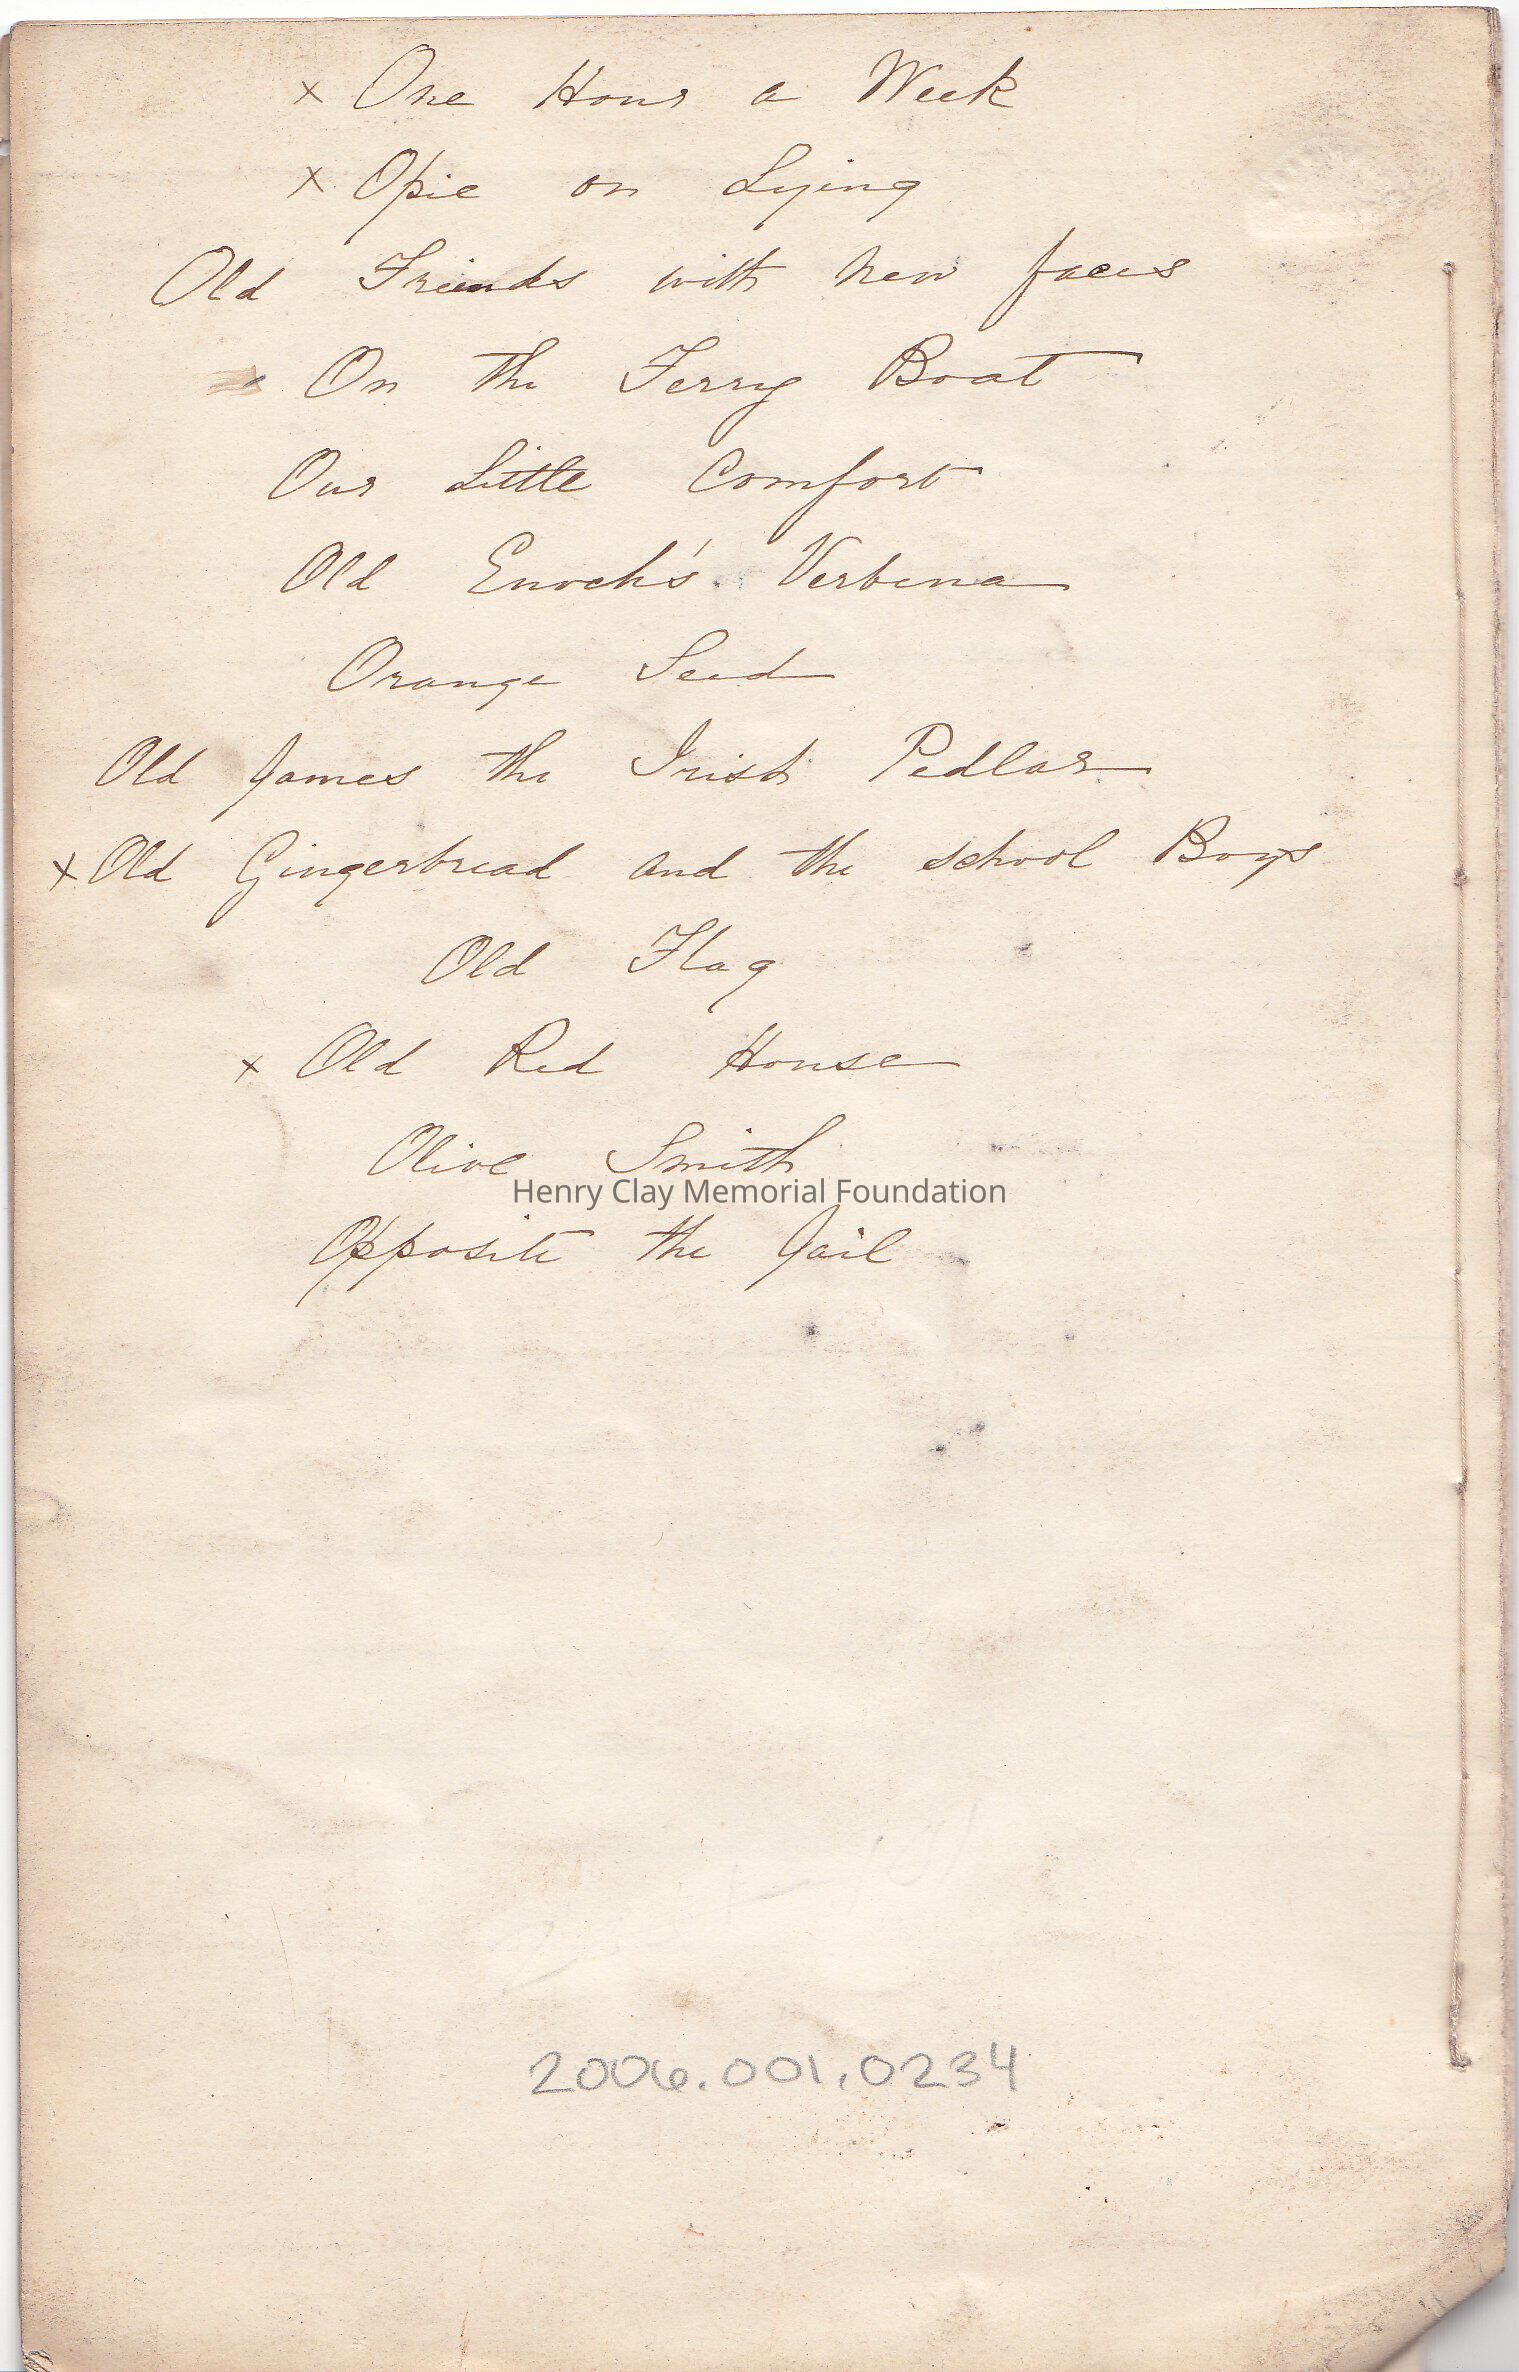 x One Hour a Week
x Opie on Lying
Old Friends with new faces
x On the Ferry Boat
Our Little Comfort
Old Enoch's Verbena
Orange Seed
Old James the Irish Pedlar
x Old Gingerbread and the school Boys
Old Flag
x Old Red House
Olive Smith
Henry Clay Memorial Foundation
Opposite the Jail
2006.001.0234